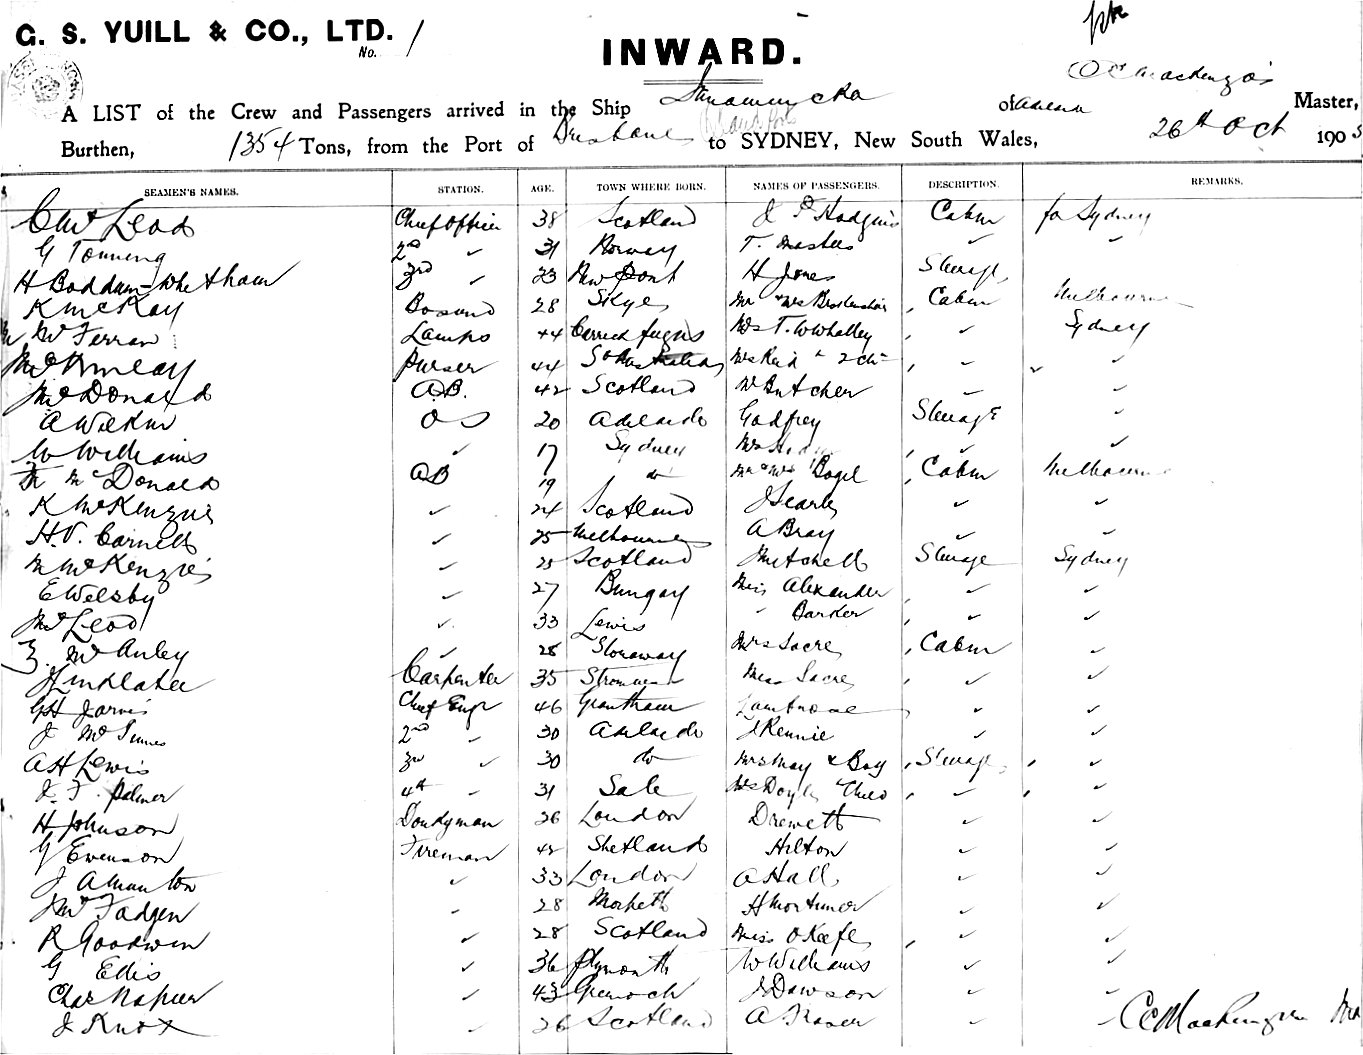 G. S. YUILL & CO., LTD.
No. 1
INWARD.
A LIST of the Crew and Passengers arrived in the Ship of Master,
Burthen, 1354 Tons, from the Port of Brisbane to SYDNEY, New South Wales, 26th Oct 1903
SEAMEN'S NAMES. STATION. AGE. TOWN WHERE BORN. NAMES OF PASSENGERS. DESCRIPTION. REMARKS.
C McLeod Chief Officer 38 Scotland Cabin for Sydney
G Tonning 2nd ✓ 31 Norway T. Masters ✓ ✓
H Boddam-Whetham 3rd ✓ 23 H Jones Steerage
K McKay Bosund 28 Skye Mr & Mrs Cabin Melbourne
McFerran Lamps 44 Carrickfergus Mrs T. W Whalley ✓ Sydney
McKinlay Purser 44 Mrs Reid & 2 Ch ✓ ✓
McDonald A.B. 42 Scotland W Butcher ✓ ✓
A Wilkin OS 20 Adelaide Godfrey Steerage ✓
W Williams ✓ 17 Sydney Mrs ✓ ✓
McDonald AB 19 do Mr & Mrs Bagel Cabin Melbourne
K McKenzie ✓ 24 Scotland J Searle ✓ ✓
H.V. Carnell ✓ 25 Melbourne A Bray ✓ ✓
M McKenzie ✓ 25 Scotland Mitchell Steerage Sydney
E Welsby ✓ 27 Bungay Miss Alexander ✓ ✓
McLeod ✓ 33 Lewis " Barker ✓ ✓
McAuley ✓ 28 Storaway Mrs Sacre Cabin ✓
J Linklater Carpenter 35 Stromness Miss Sacre ✓ ✓
GH Jarvis Chief Engr 46 Grantham ✓ ✓
J McInnes 2nd ✓ 30 Adelaide J Rennie ✓ ✓
A H Lewis 3rd ✓ 30 do Mrs May & Boy Steerage ✓
J. F. Palmer 4th ✓ 31 Sale Mrs Doyle & Child ✓ ✓
H Johnson Donkyman 26 London Drewett ✓ ✓
G Evenson Fireman 42 Shetland Hilton ✓ ✓
J A Manton ✓ 33 London A Hall ✓ ✓
J McFadgen ✓ 28 Morpeth H Mortimer ✓ ✓
R Goodwin ✓ 28 Scotland Miss O'Keefe ✓ ✓
G Ellis ✓ 36 Plymouth W Williams ✓ ✓
Chas Napier ✓ 43 Greenock J Dawson ✓ ✓
J Knox ✓ 26 Scotland A Fraser ✓